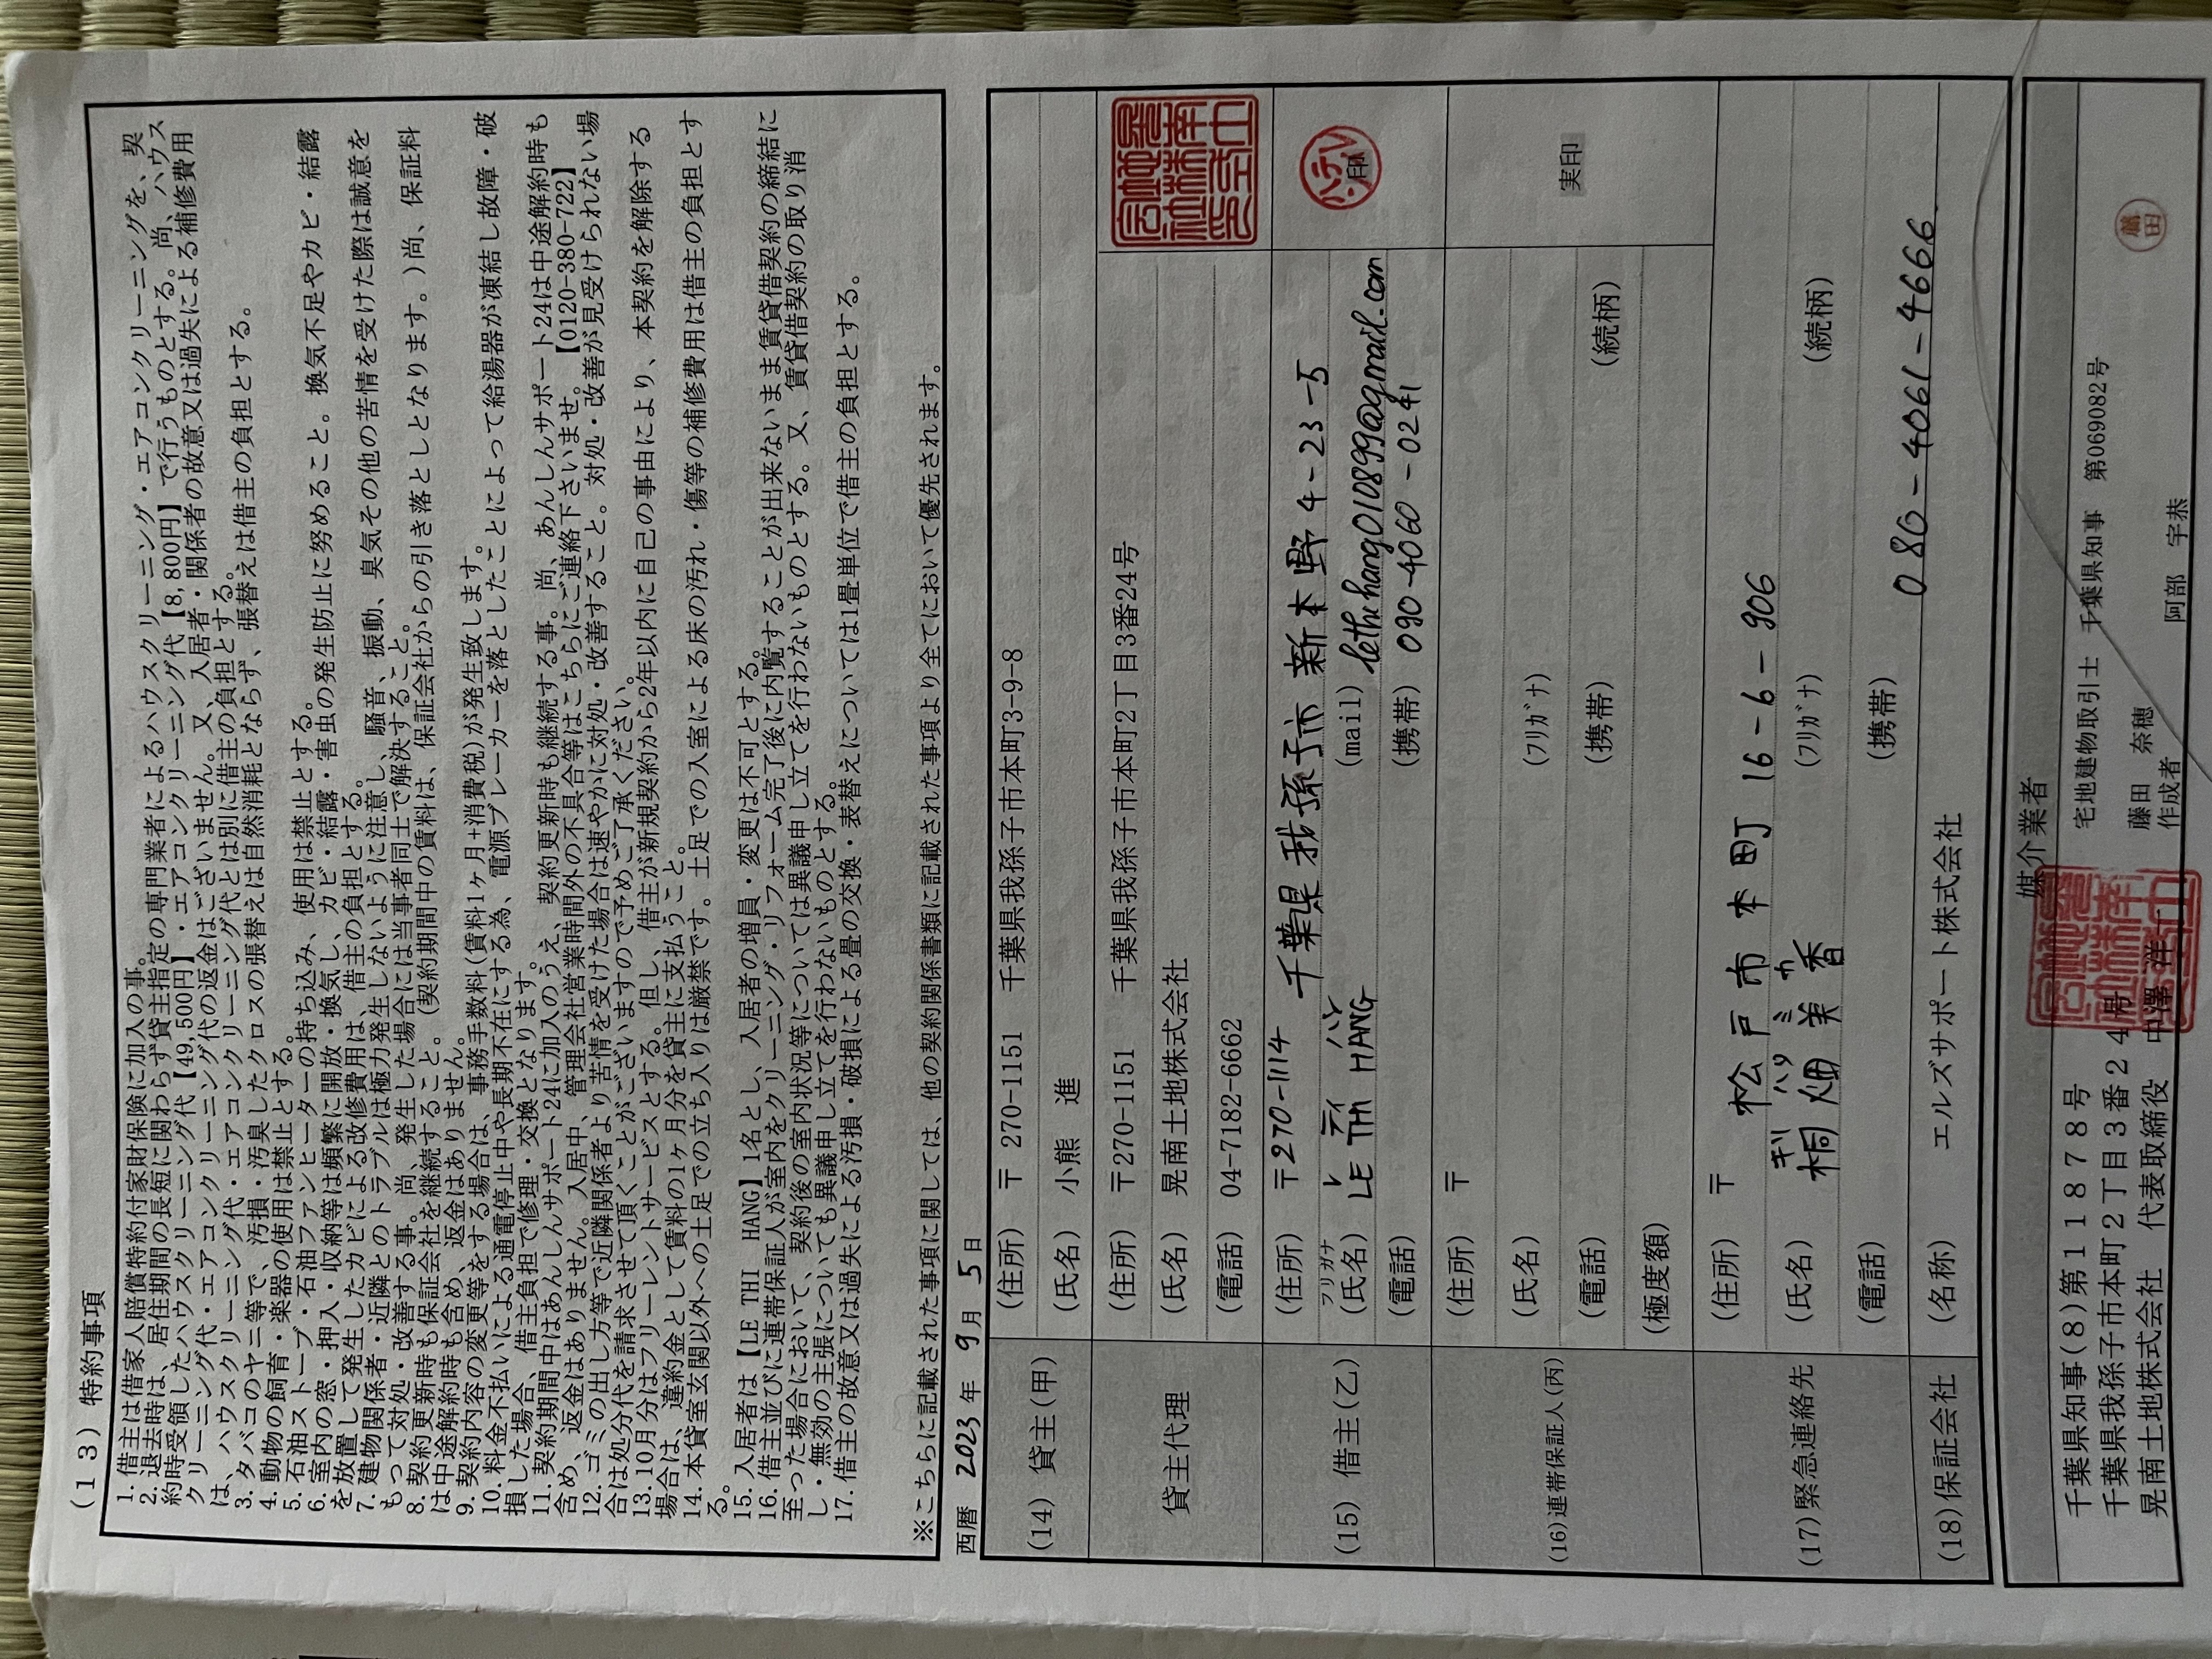 (13) 特約事項
1. 借主は借家人賠償特約付家財保険に加入の事。
2. 退去時は、居住期間の長短に関わらず貸主指定の専門業者によるハウスクリーニング・エアコンクリーニングを、契
約時受領したハウスクリーニング代【49,500円】・エアコンクリーニング代【8,800円】で行うものとする。尚、ハウス
クリーニング代・エアコンクリーニング代の返金はございません。又、入居者・関係者の故意又は過失による補修費用
は、ハウスクリーニング代・エアコンクリーニング代とは別に借主の負担とする。
3. タバコのヤニ等で、汚損・汚臭したクロスの張替えは自然消耗とならず、張替えは借主の負担とする。
4. 動物の飼育・楽器の使用は禁止とする。
5. 石油ストーブ・石油ファンヒーターの持ち込み、使用は禁止とする。
6. 室内の窓・押入・収納等は頻繁に開放・換気し、カビ・結露・害虫の発生防止に努めること。換気不足やカビ・結露
を放置して発生したカビによる改修費用は、借主の負担とする。
7. 建物関係者・近隣とのトラブルは極力発生しないように注意し、騒音、振動、臭気その他の苦情を受けた際は誠意を
もって対処・改善する事。尚、発生した場合には当事者同士で解決すること。
8. 契約更新時も保証会社を継続すること。(契約期間中の賃料は、保証会社からの引き落としとなります。)尚、保証料
は中途解約時も含め、返金はありません。
9. 契約内容の変更等をする場合は、事務手数料(賃料1ヶ月+消費税)が発生致します。
10. 料金不払いによる通電停止中や長期不在にする為、電源ブレーカーを落としたことによって給湯器が凍結し故障・破
損した場合、借主負担で修理・交換となります。
11. 契約期間中はあんしんサポート24に加入のうえ、契約更新時も継続する事。尚、あんしんサポート24は中途解約時も
含め、返金はありません。入居中、管理会社営業時間外の不具合等はこちらにご連絡下さいませ。【0120-380-722】
12. ゴミの出し方等で近隣関係者より苦情を受けた場合は速やかに対処・改善すること。対処・改善が見受けられない場
合は処分代を請求させて頂くことがございますので予めご了承ください。
13. 10月分はフリーレントサービスとする。但し、借主が新規契約から2年以内に自己の事由により、本契約を解除する
場合は、違約金として賃料の1ヶ月分を貸主に支払うこと。
14. 本貸室玄関以外への土足での立ち入りは厳禁です。土足での入室による床の汚れ・傷等の補修費用は借主の負担とす
る。
15. 入居者は【LE THI HANG】1名とし、入居者の増員・変更は不可とする。
16. 借主並びに連帯保証人が室内をクリーニング・リフォーム完了後に内覧することが出来ないまま賃貸借契約の締結に
至った場合において、契約後の室内状況等については異議申し立てを行わないものとする。又、賃貸借契約の取り消
し・無効の主張についても異議申し立てを行わないものとする。
17. 借主の故意又は過失による汚損・破損による畳の交換・表替えについては1畳単位で借主の負担とする。
※こちらに記載された事項に関しては、他の契約関係書類に記載された事項より全てにおいて優先されます。
西暦 2023 年 9 月 5 日
(14) 貸主(甲)
(住所) 〒 270-1151 千葉県我孫子市本町3-9-8
(氏名) 小熊 進
貸主代理
(住所) 〒270-1151 千葉県我孫子市本町2丁目3番24号
(氏名) 晃南土地株式会社
(電話) 04-7182-6662
(15) 借主(乙)
(住所) 〒270-1114 千葉県我孫子市新木野4-23-5
フリガナ レ ティ ハン
(氏名) LE THI HANG (mail) lethihang010899@gmail.com
印
(電話) (携帯) 090-4060-0241
(16)連帯保証人(丙)
(住所) 〒
(氏名) (フリガナ)
実印
(電話) (携帯) (続柄)
(極度額)
(17)緊急連絡先
(住所) 〒 松戸市本町 16-6-906
キリ ハタ ミ カ
(氏名) 桐畑 美香 (フリガナ) (続柄)
(電話) (携帯) 080-4061-4666
(18)保証会社 (名称) エルズサポート株式会社
媒介業者
千葉県知事(8)第11878号
千葉県我孫子市本町2丁目3番24号
晃南土地株式会社 代表取締役 中澤 洋一
宅地建物取引士 千葉県知事 第069082号
藤田 奈穂
作成者 阿部 宇恭